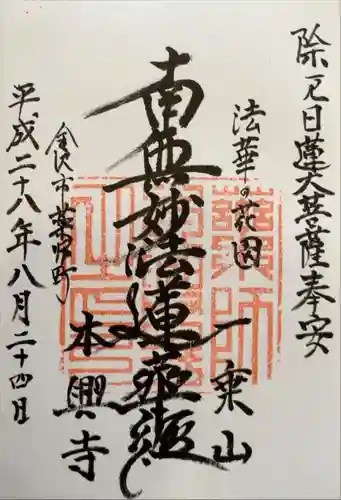 除厄日蓮大菩薩奉安
法華の花園
一乗山
南無妙法蓮華経
本興寺
平成二十八年八月二十四日